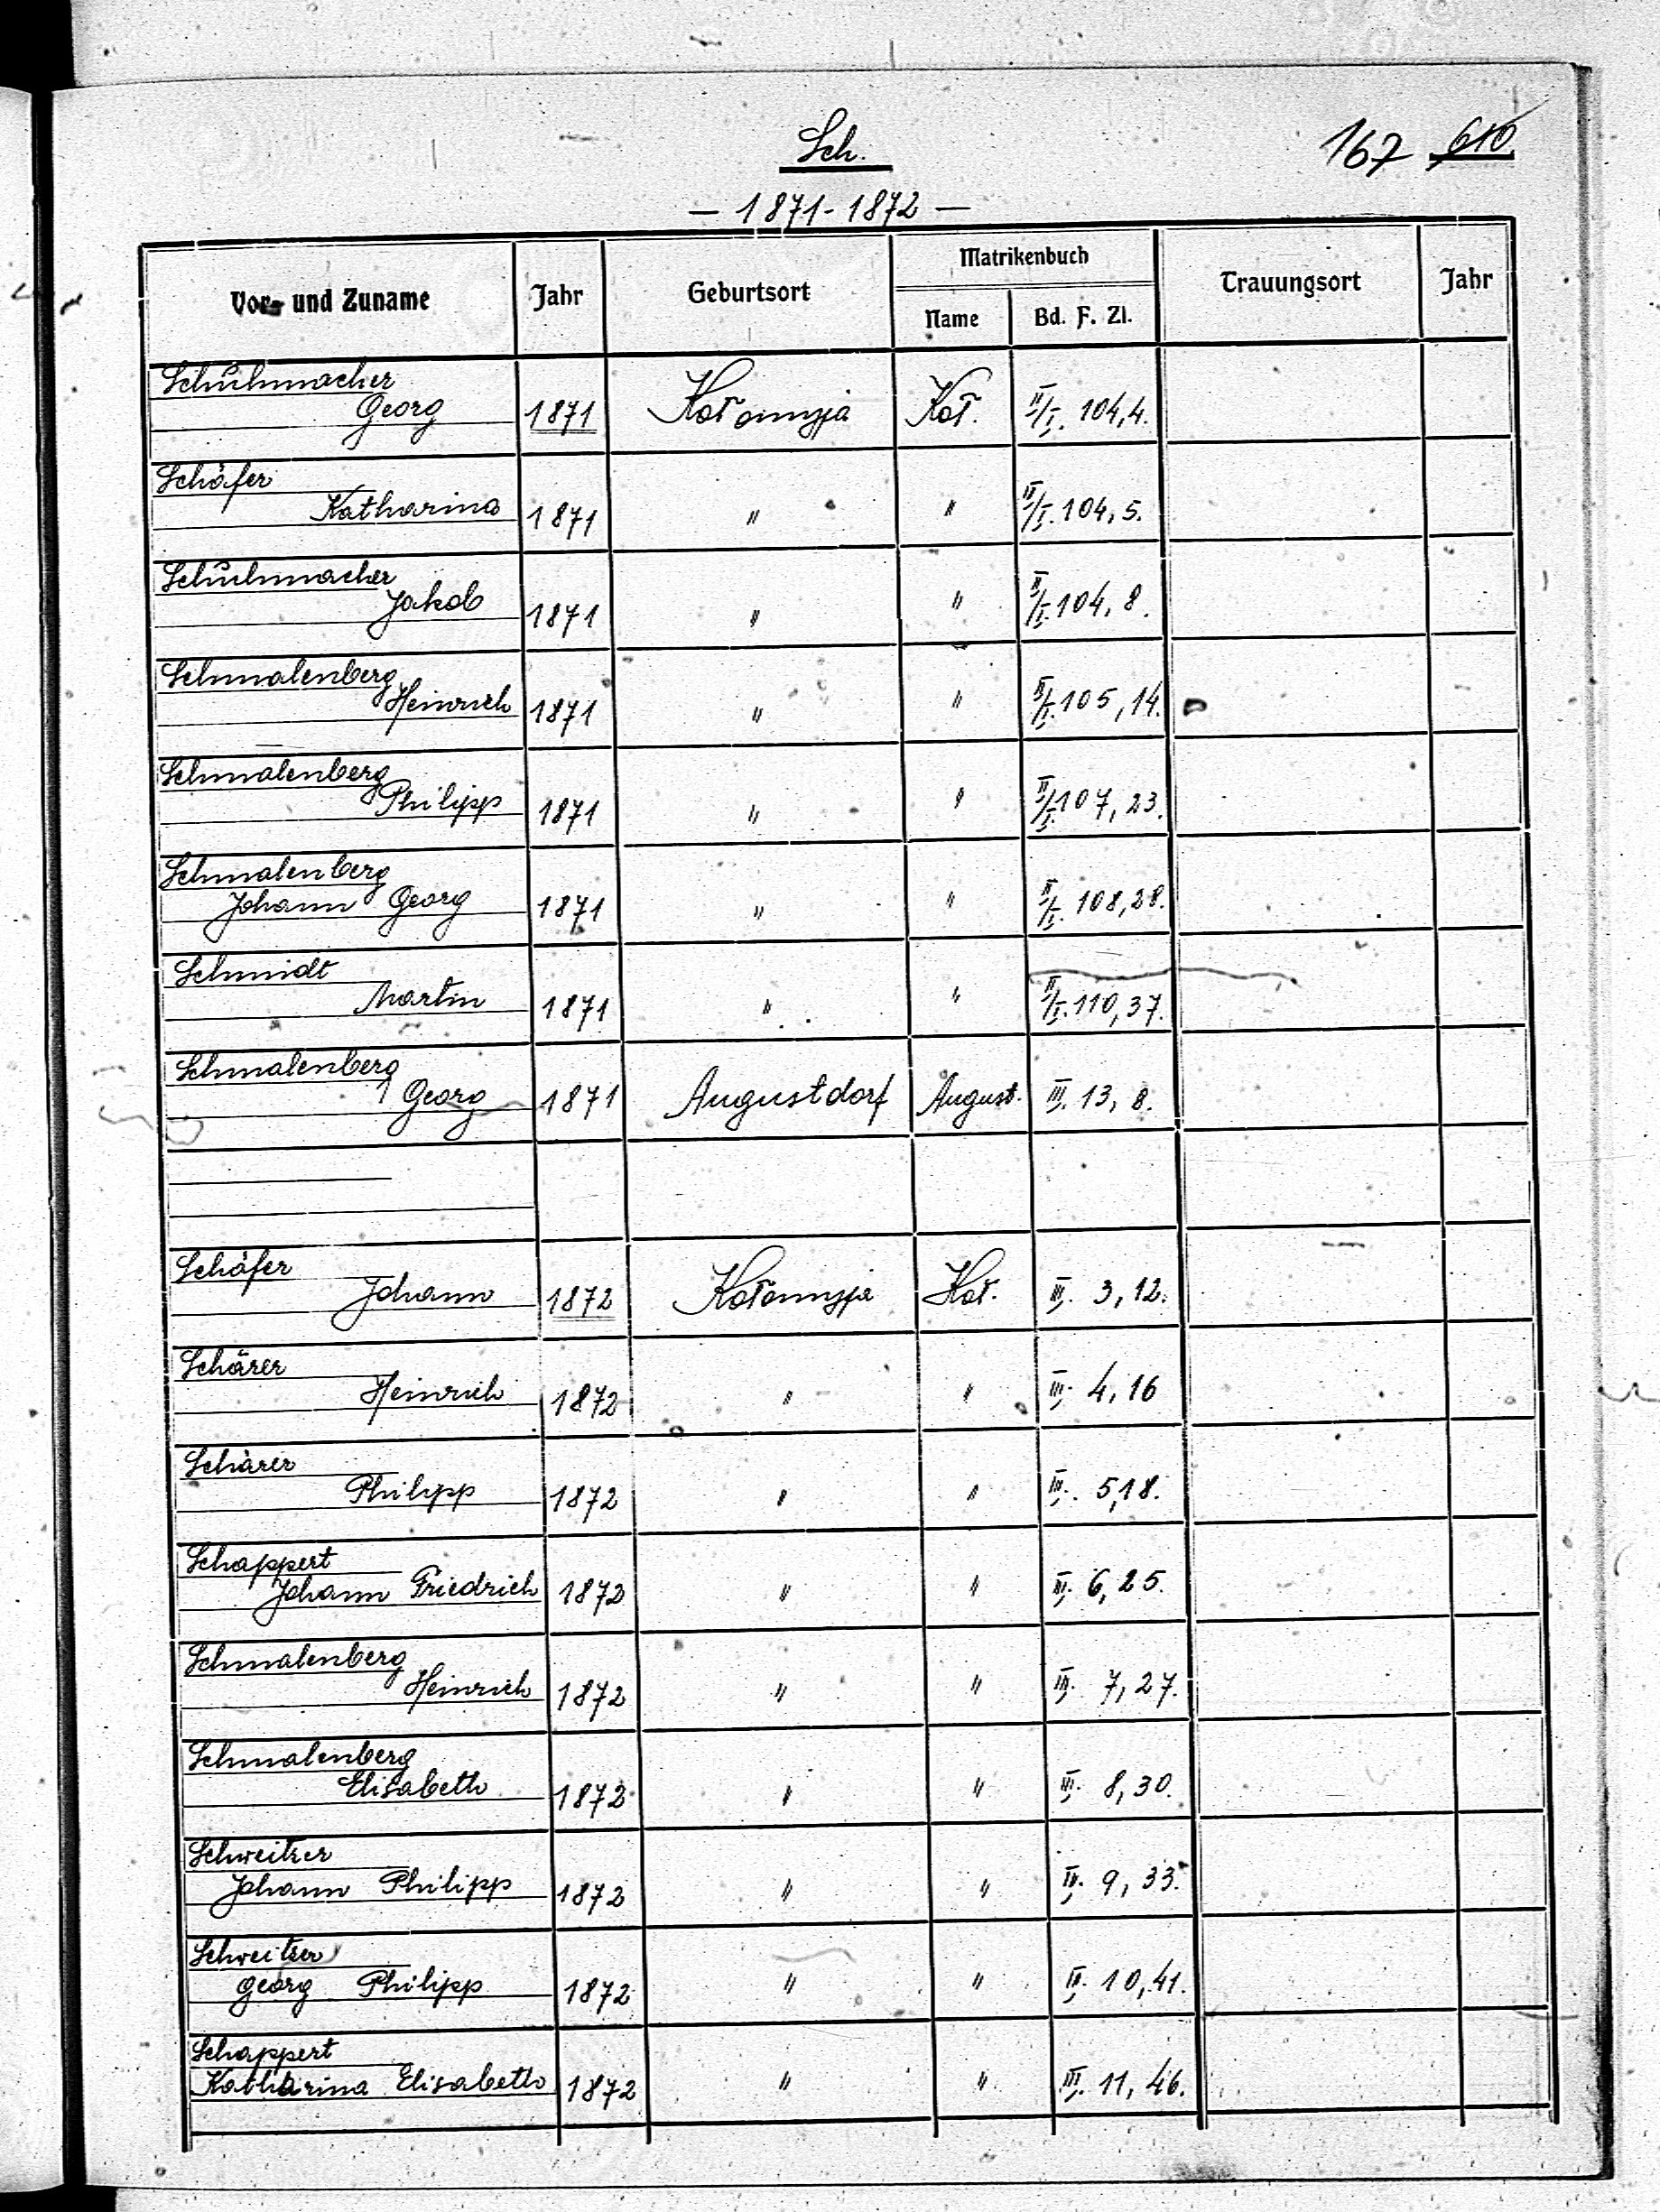 Sch.
167 610
— 1871-1872 —
Vor- und Zuname Jahr Geburtsort Matrikenbuch Name Bd. F. Zl. Trauungsort Jahr
Schuhmacher
Georg 1871 Kołomyja Koł. II/I. 104,4.
Schäfer
Katharina 1871 " " II/I. 104,5.
Schuhmacher
Jakob 1871 " " II/I. 104,8.
Schmalenberg
Heinrich 1871 " " II/I. 105,14.
Schmalenberg
Philipp 1871 " " II/I. 107,23.
Schmalenberg
Johann Georg 1871 " " II/I. 108,28.
Schmidt
Martin 1871 " " II/I. 110,37.
Schmalenberg
Georg 1871 Augustdorf August. III. 13, 8.
Schäfer
Johann 1872 Kołomyja Koł. III. 3,12.
Schärer
Heinrich 1872 " " III. 4,16
Schärer
Philipp 1872 " " III. 5,18.
Schappert
Johann Friedrich 1872 " " III. 6,25.
Schmalenberg
Heinrich 1872 " " III. 7,27.
Schmalenberg
Elisabeth 1872 " " III. 8,30.
Schweitzer
Johann Philipp 1872 " " III. 9,33.
Schweitzer
Georg Philipp 1872 " " III. 10,41.
Schappert
Katharina Elisabeth 1872 " " III. 11,46.